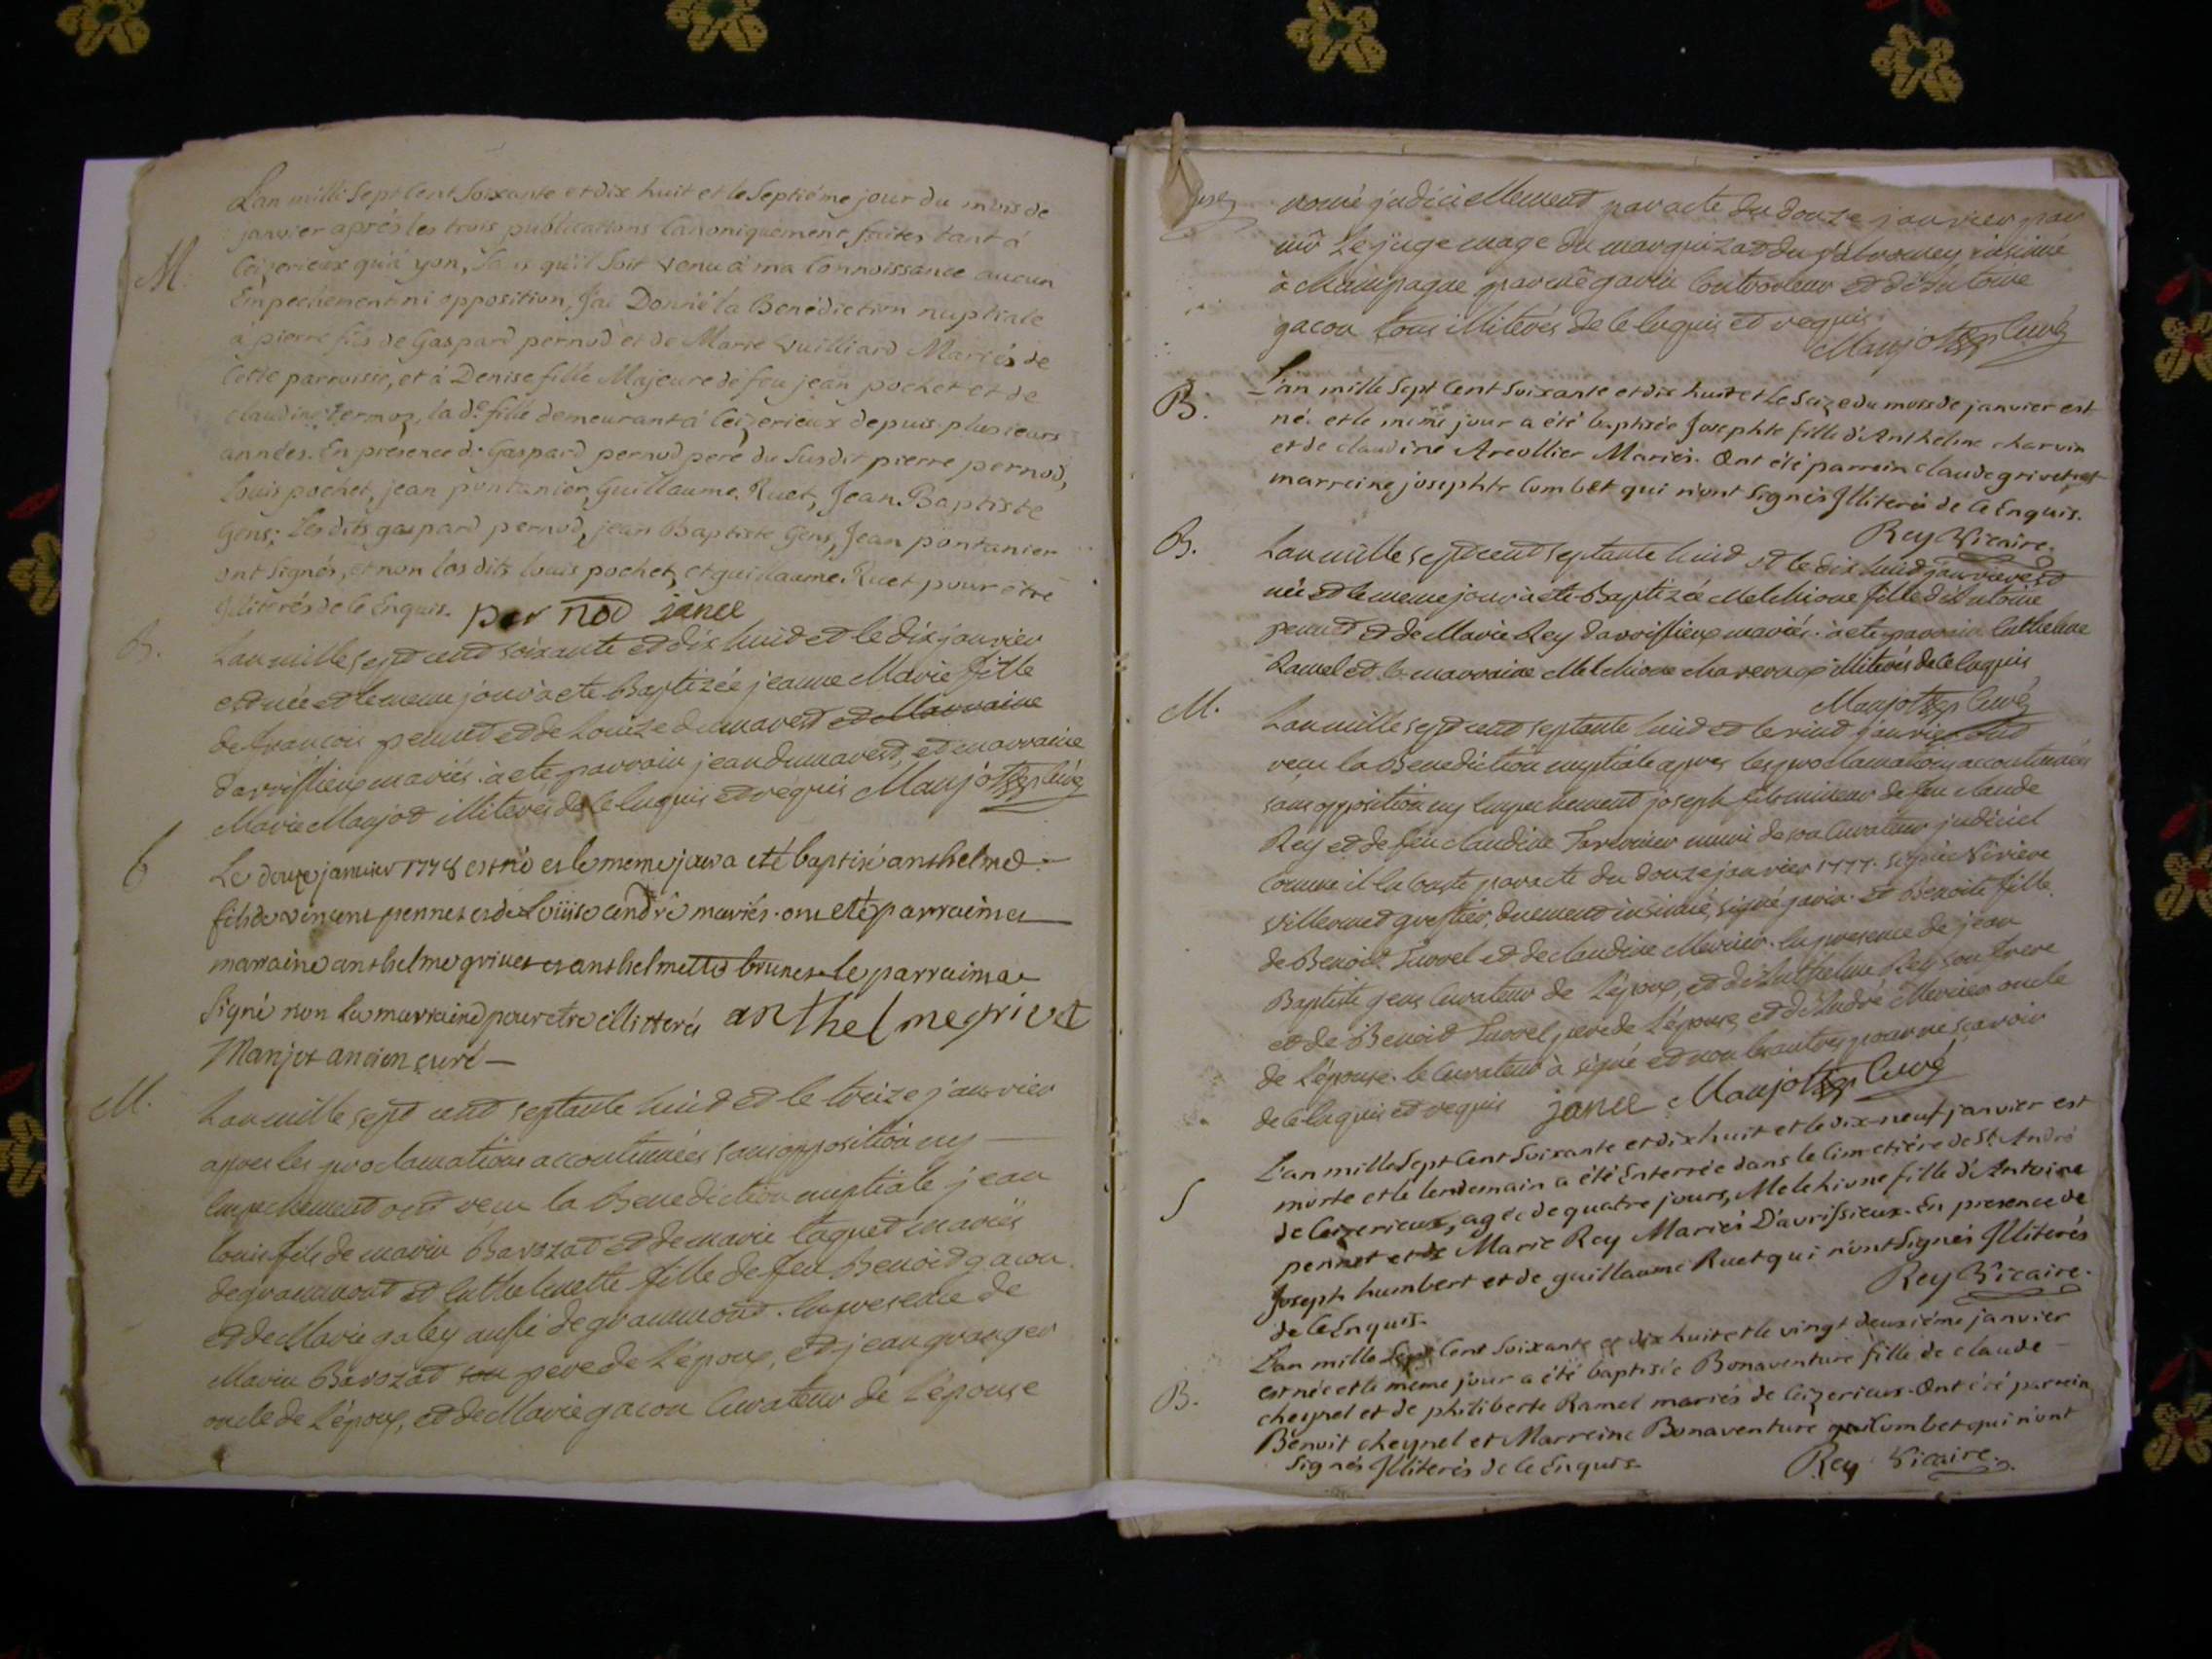 Lan mille Sept Cent Soixante et dix huit et le Septiéme jour du mois de
janvier aprés les trois publications Canoniquement faites tant à
M.
Ceizerieux qu'à yon, Sans qu'il Soit venu à ma Connoissance aucun
Empechement ni opposition, J'ai Donné la Benédiction nuptiale
à pierre fils de Gaspard pernod et de Marie vuilliard Mariés de
Cette parroisse, et à Denise fille Majeure de feu jean pochet et de
claudine, la de. fille demeurant à Ceizerieux depuis plusieurs
années. En présence de Gaspard pernod pere du Susdit pierre pernod,
Louis pochet, jean pontanier, Guillaume Ruet, Jean Baptiste
Gens; Lesdits gaspard pernod, jean Baptiste Gens, Jean pontanier
ont Signés, et non les dits Louis pochet, et guillaume Ruet pour être
Illiterés de ce Enquis. per nod janee
B.
Lan mille sept cent soixante et dix huid et le dix janvier
est née et le meme jour à eté Baptizée jeanne Marie fille
de francois pennet et de Louize dumarest et Marraine
d'avrissieux mariés. à eté parrain jean dumarest, et marraine
Marie Manjot illiterés de ce Enquis et requis Manjot curé
6
Le douze janvier 1778 est né et le meme jour a eté baptisé anthelme
fils de vincent pennet et de Loüise andré mariés. ont eté parrain et
marraine anthelme grivet et anthelmette brunet le parrain a
Signé non la marraine pour etre illitteréé anthelme grivet
Manjot ancien curé
M.
Lan mille sept cent septante huid et le treize janvier
apres les proclamations accoutumées sans opposition ny
Empechement ont recu la Benediction nuptiale jean
Louis fils de marin Barozat et de marie taquet mariés
de grammont et Enthelmette fille de feu Benoid gacon
et de Marie galey aussi de grammont. En presence de
Marin Barozat son pere de L'époux, et jean granger
oncle de L'époux, et de Marie gacon Curateur de L'épouse
nommé judiciellement par acte du douze janvier par
Le juge mage du marquizat du Valromey insinué
à Champagne par me gavin Controlleur et d'Antoine
gacon tous illiterés de ce Enquis et requis.
Manjot Curé
B.
L'an mille Sept Cent Soixante et dix huit et le Seize du mois de janvier est
né. et le même jour a été baptisée Josephte fille d'Anthelme charvin
et de claudine Arcollier Mariés. Ont été parrein claude grivet et
marreine josephte Combet qui n'ont Signés Illiterés de Ce Enquis.
Rey Vicaire.
B.
Lan mille sept cent septante huid et le dix huid janvier est
née et le meme jour à eté Baptizée Melchione fille d'Antoine
pennet et de Marie Rey d'avrissieux mariés. à eté parrain Enthelme
Ramel et la marraine Melchione illiterés de ce Enquis
Manjot Curé
M.
Lan mille sept cent septante huid et le vind janvier ont
recu la Benediction nuptiale apres les proclamations accoutumées
sans opposition ny Empechement joseph fils mineur de feu claude
Rey et de feu claudine muni de son Curateur judiciel
comme il En Conste par acte du douze janvier 1777. signé
Villermet greffier, duement insinué, signé gavin. et Benoite fille
de Benoit Surrel et de claudine Mercier. En presence de jean
Baptiste gens Curateur de L'époux, et d'Enthelme Rey son frere
et de Benoit Surrel pere de L'épouse, et d'André Mercier oncle
de L'épouse. le Curateur à signé et non les autres pour ne scavoir
de ce Enquis et requis janee Manjot Curé
S
L'an mille Sept Cent Soixante et dix huit et le dix-neuf janvier est
morte et le lendemain a été Enterrée dans le Cimetiére de St. André
de Ceizerieux, agée de quatre jours, Melchione fille d'Antoine
pennet et de Marie Rey Mariés D'avrissieux. En presence de
Joseph humbert et de guillaume Ruet qui n'ont Signés Illiterés
de Ce Enquis.
Rey Vicaire.
B.
L'an mille Sept Cent Soixante et dix huit et le vingt deuxiéme janvier
est née et le meme jour a été baptisée Bonaventure fille de claude
cheynel et de philiberte Ramel mariés de Ceizerieux. Ont été parrein
Benoit cheynel et Marreine Bonaventure Combet qui n'ont
Signés Illiterés de Ce Enquis.
Rey Vicaire.